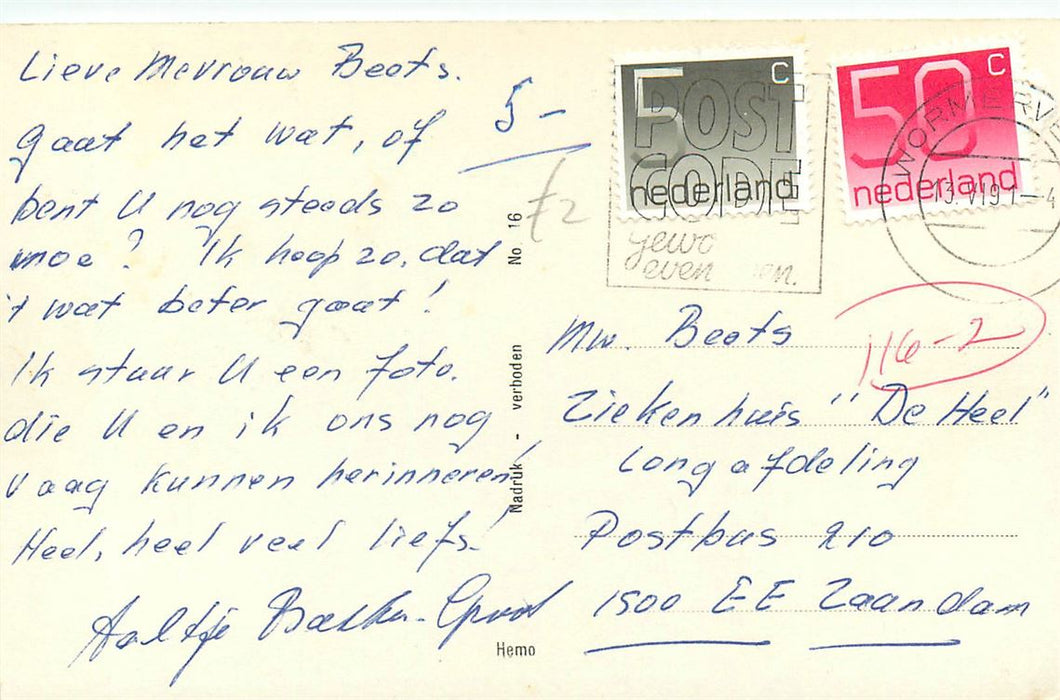 Lieve Mevrouw Beets.
gaat het wat, of
bent U nog steeds zo
moe? Ik hoop zo, dat
't wat beter gaat!
Ik stuur U een foto.
die U en ik ons nog
vaag kunnen herinneren!
Heel, heel veel liefs!
Aaltje Bakker-Groot
5-
£2
No 16
Nadruk - verboden
Hemo
5 c
nederland
50 c
nederland
POST
CODE
gewo
even
WORMERVE
13.VI.91-4
Mw. Beets
116-2
Ziekenhuis "De Heel"
Longafdeling
Postbus 210
1500 EE Zaandam